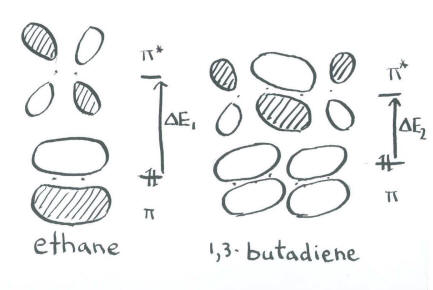 π*
ΔE₁
π
ethane
π*
ΔE₂
π
1,3-butadiene